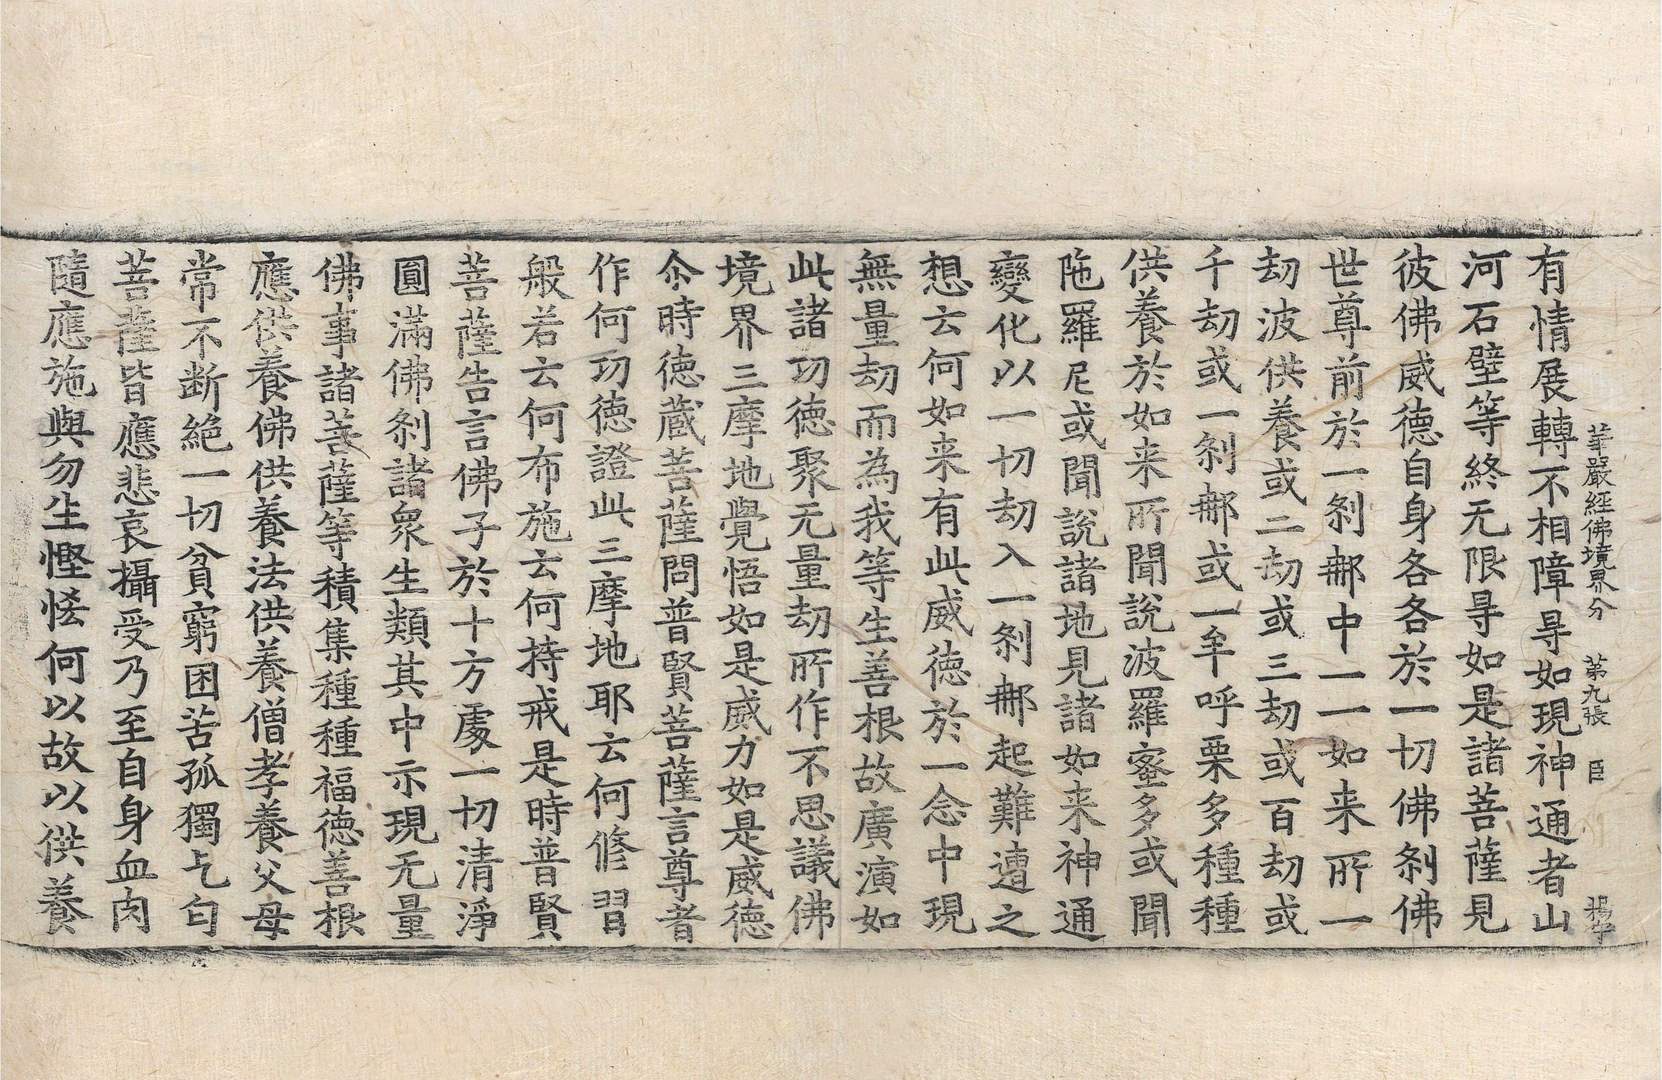 華嚴經佛境界分 第九張 臣 楊字
有情展轉不相障㝵如現神通者山
河石壁等終无限㝵如是諸菩薩見
彼佛威德自身各各於一切佛剎佛
世尊前於一剎那中一一如来所一
劫波供養或二劫或三劫或百劫或
千劫或一剎那或一牟呼栗多種種
供養於如来所聞說波羅蜜多或聞
陁羅尼或聞說諸地見諸如来神通
變化以一切劫入一剎那起難遭之
想云何如来有此威德於一念中現
無量劫而為我等生善根故廣演如
此諸功德聚无量劫所作不思議佛
境界三摩地覺悟如是威力如是威德
尒時德蔵菩薩問普賢菩薩言尊者
作何功德證此三摩地耶云何修習
般若云何布施云何持戒是時普賢
菩薩告言佛子於十方處一切清淨
圓滿佛剎諸衆生類其中示現无量
佛事諸菩薩等積集種種福德善根
應供養佛供養法供養僧孝養父母
常不断絕一切貧窮困苦孤獨乞匂
菩薩皆應悲哀攝受乃至自身血肉
隨應施與勿生慳悋何以故以供養